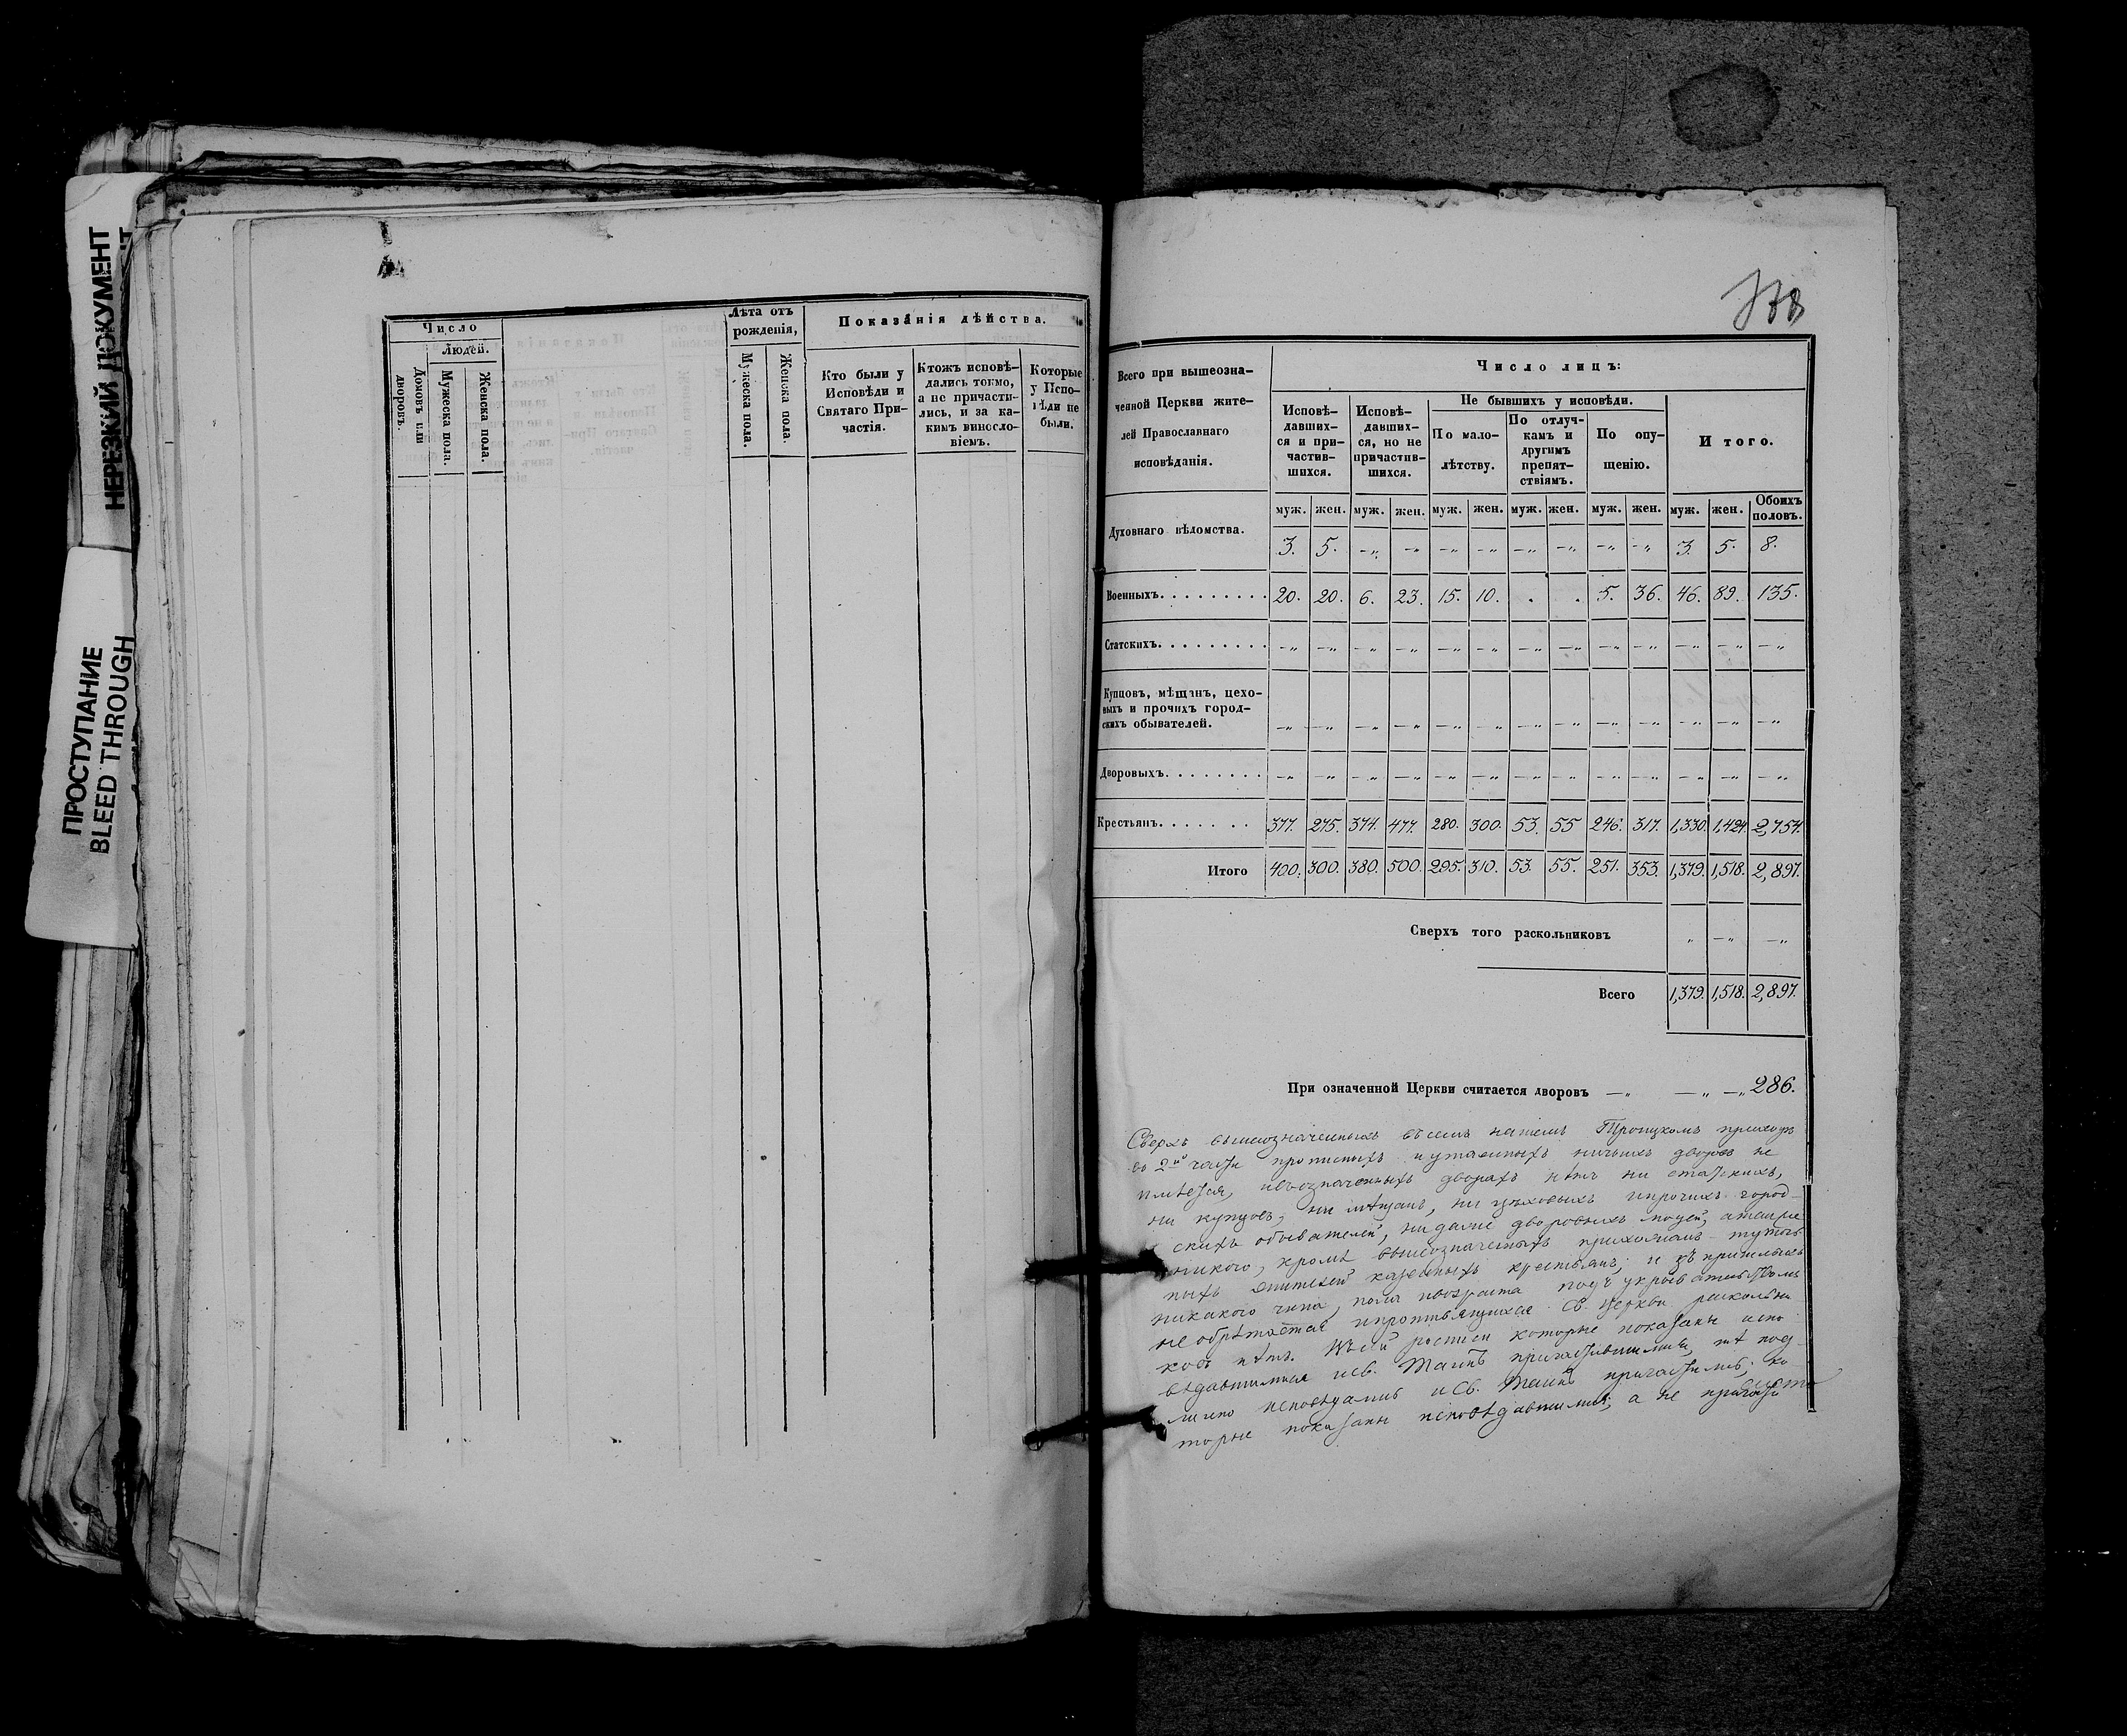 НЕРЕЗКИЙ ДОКУМЕНТ
ПРОСТУПАНИЕ
BLEED THROUGH
Число
Людей.
Домовъ или дворовъ.
Мужеска пола.
Женска пола.
Лѣта отъ рожденія,
Мужеска пола.
Женска пола.
Показанія дѣйства.
Кто были у
Исповѣди и
Святаго При-
частія.
Ктожъ исповѣ-
дались токмо,
а не причасти-
лись, и за ка-
кимъ винословіемъ.
Которые
у Испо-
вѣди не
были.
Всего при вышеозна-
ченной Церкви жите-
лей Православнаго
исповѣданія.
Число лицъ:
Исповѣ-
давших-
ся и при-
частив-
шихся.
Исповѣ-
давших-
ся, но не
причастив-
шихся.
Не бывшихъ у исповѣди.
По мало-
лѣтству.
По отлуч-
камъ и
другимъ
препят-
ствіямъ.
По опу-
щенію.
Итого.
муж. жен. муж. жен. муж. жен. муж. жен. муж. жен. муж. жен. Обоихъ половъ.
Духовнаго вѣдомства. 3. 5. -„ -„ -„ -„ -„ -„ -„ -„ 3. 5. 8.
Военныхъ. 20. 20. 6. 23. 15. 10. . . 5. 36. 46. 89. 135.
Статскихъ. -„ -„ -„ -„ -„ -„ -„ -„ -„ -„ -„ -„ -„
Купцовъ, мѣщанъ, цехо-
выхъ и прочихъ город-
скихъ обывателей. -„ -„ -„ -„ -„ -„ -„ -„ -„ -„ -„ -„ -„
Дворовыхъ. -„ -„ -„ -„ -„ -„ -„ -„ -„ -„ -„ -„ -„
Крестьянъ. 377. 275. 374. 477. 280. 300. 53. 55 246. 317. 1,330. 1,424. 2,754.
Итого 400. 300. 380. 500. 295. 310. 53. 55. 251. 353. 1,379. 1,518. 2,897.
Сверхъ того раскольниковъ „ -„ -„
Всего 1,379. 1,518. 2,897.
При означенной Церкви считается дворовъ -„ -„ -„ 286.
Сверхъ вышеозначенныхъ въ семъ нашемъ Троицкомъ приходѣ
во 2й части прописныхъ и утаенныхъ дворовъ не
имѣется, и въ означенныхъ дворахъ нѣтъ ни статскихъ,
ни купцовъ, ни мѣщанъ, ни цеховыхъ и прочихъ город-
скихъ обывателей, ни даже дворовыхъ людей,
никого, кромѣ вышеозначенныхъ прихожанъ
казенныхъ крестьянъ; и
никакого чина, пола и возраста подъ укрывательствомъ
не обрѣтается и противящихся Св. Церкви расколни-
ковъ нѣтъ. Въ сей росписи которые показаны испо-
вѣдавшимися и Св. Таинъ причастившимися, тѣ под-
линно исповѣдались и Св. Таинъ причастились; ко-
торые показаны исповѣдавшимися, а не